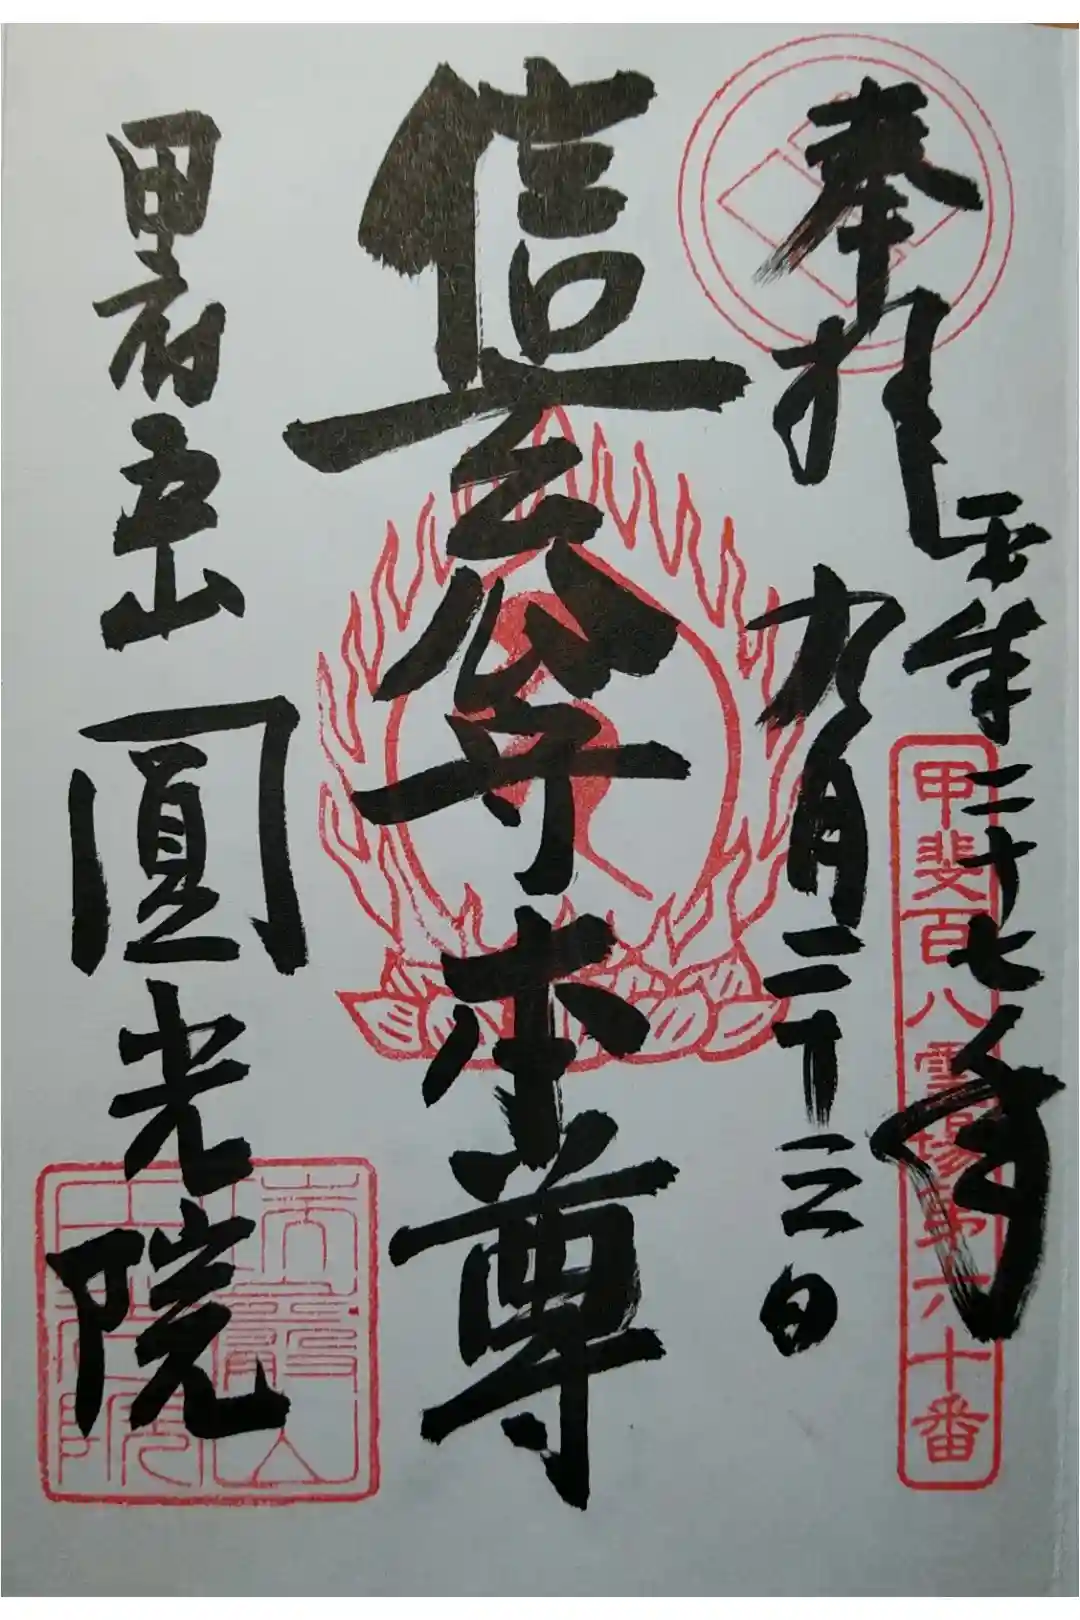 奉拝
平成二十七年
九月二十三日
甲斐百八霊場第六十番
信玄公守本尊
甲府五山
圓光院